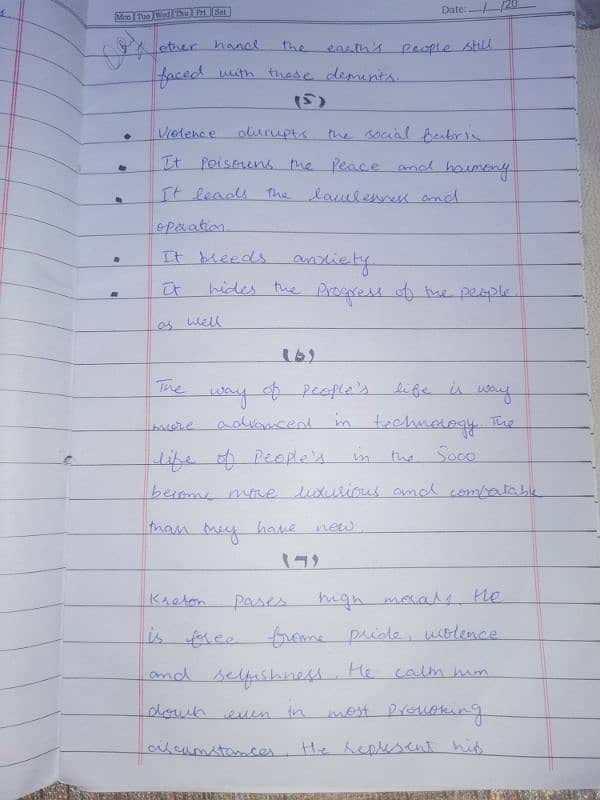 Mon Tue Wed Thu Fri Sat
Date: __/__/20
other hand the earth's people still
faced with these demerits.
(5)
• Violence disrupts the social fabric
• It poisouns the Peace and harmony
• It leads the lawlessness and
operation
• It breeds anxiety
• It hides the Progress of the people
as well
(6)
The way of People's life is way
more advanced in technology. The
life of People's in the 3000
become more luxurious and comfortable
than they have now.
(7)
Kreton poses high morals. He
is free frome pride, violence
and selfishness. He calm him
down even in most Provoking
circumstances. He represent his